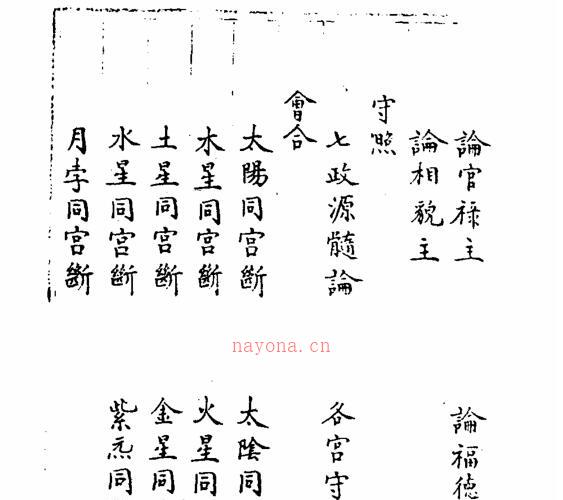 論官祿主 論福德
論相貌主
守照
七政源髓論 各宮守
會合
太陽同宮斷 太陰同
木星同宮斷 火星同
土星同宮斷 金星同
水星同宮斷 紫炁同
月孛同宮斷
nayona.cn